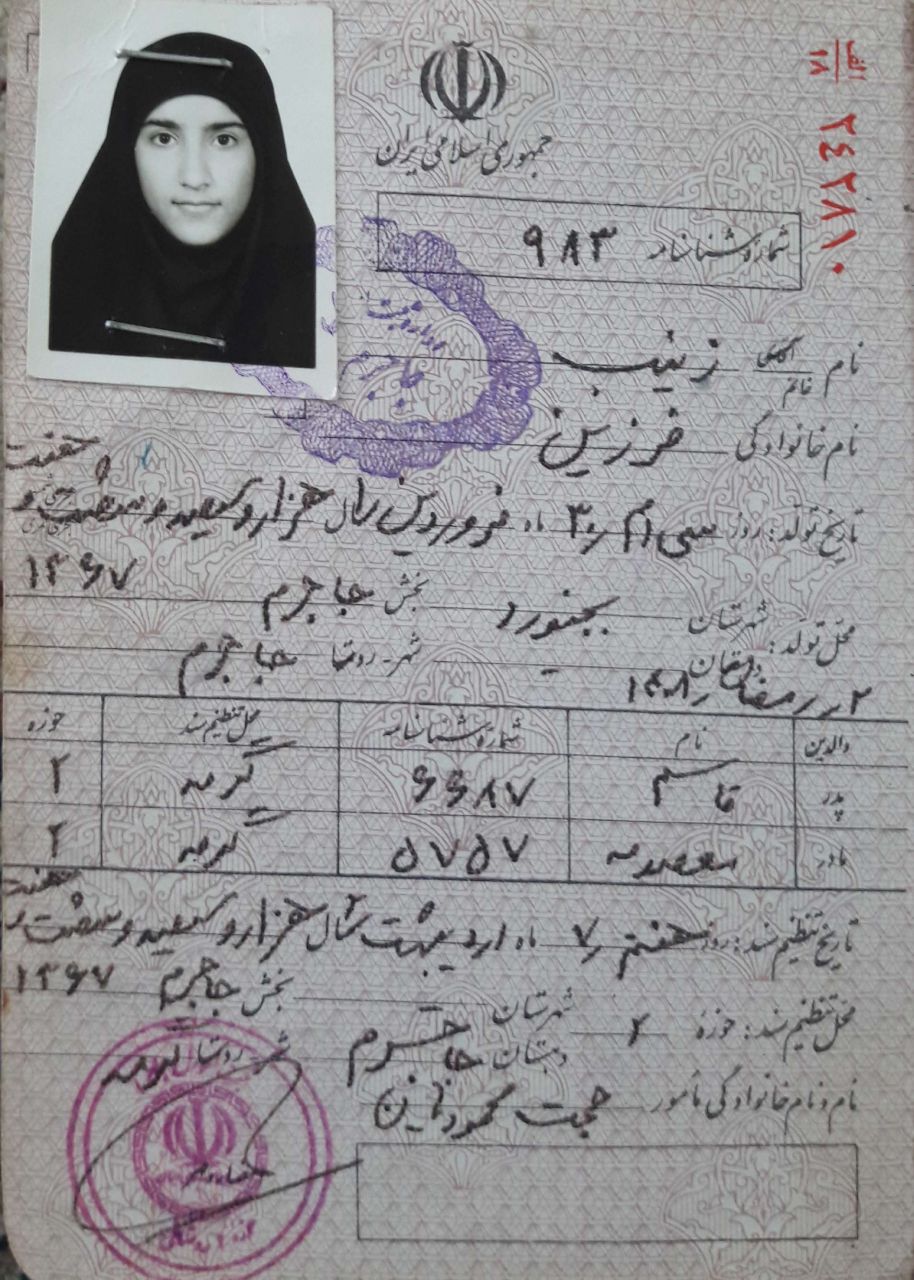 الف
۱۸
۲۴۲۸۱۰
جمهوری اسلامی ایران
شماره شناسنامه ۹۸۳
نام آقای خانم زینب
نام خانوادگی فرزین
تاریخ تولد: روز سی ام ۳۰ ماه فروردین سال هزار و سیصد و شصت و هفت
۱۳۶۷
محل تولد: شهرستان بجنورد بخش جاجرم
دهستان شهر - روستا جاجرم
۲ رمضان ۱۴۰۸
والدین نام شماره شناسنامه محل تنظیم سند حوزه
پدر قاسم ۶۶۸۷ گرمه ۲
مادر معصومه ۵۷۵۷ گرمه ۲
تاریخ تنظیم سند: روز هفتم ۷ ماه اردیبهشت سال هزار و سیصد و شصت و هفت
۱۳۶۷
محل تنظیم سند: حوزه ۲ شهرستان بخش جاجرم
دهستان جاجرم شهر روستا گرمه
نام و نام خانوادگی مأمور حجت